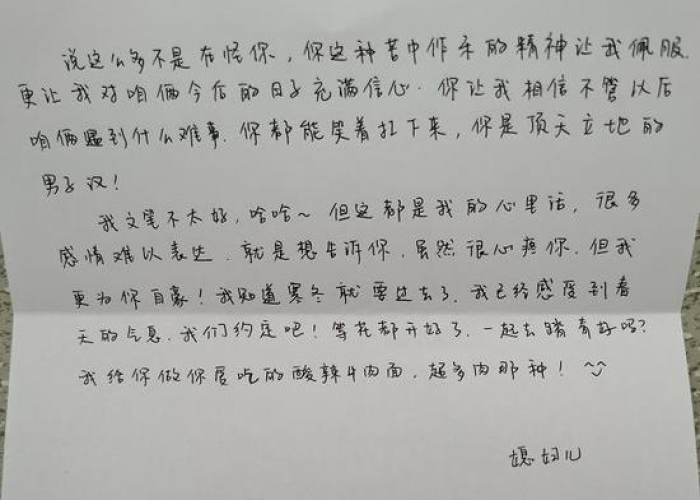 说这么多不是在怪你，你这种苦中作乐的精神让我佩服.
更让我对咱俩今后的日子充满信心.你让我相信不管以后
咱俩遇到什么难事.你都能笑着扛下来，你是顶天立地的
男子汉！
我文笔不太好，哈哈～但这都是我的心里话，很多
感情难以表达.就是想告诉你.虽然很心疼你.但我
更为你自豪！我知道寒冬就要过去了.我已经感受到春
天的气息.我们约定吧！等花都开好了.一起去踏青好吗？
我给你做你爱吃的酸辣牛肉面.超多肉那种！
媳妇儿